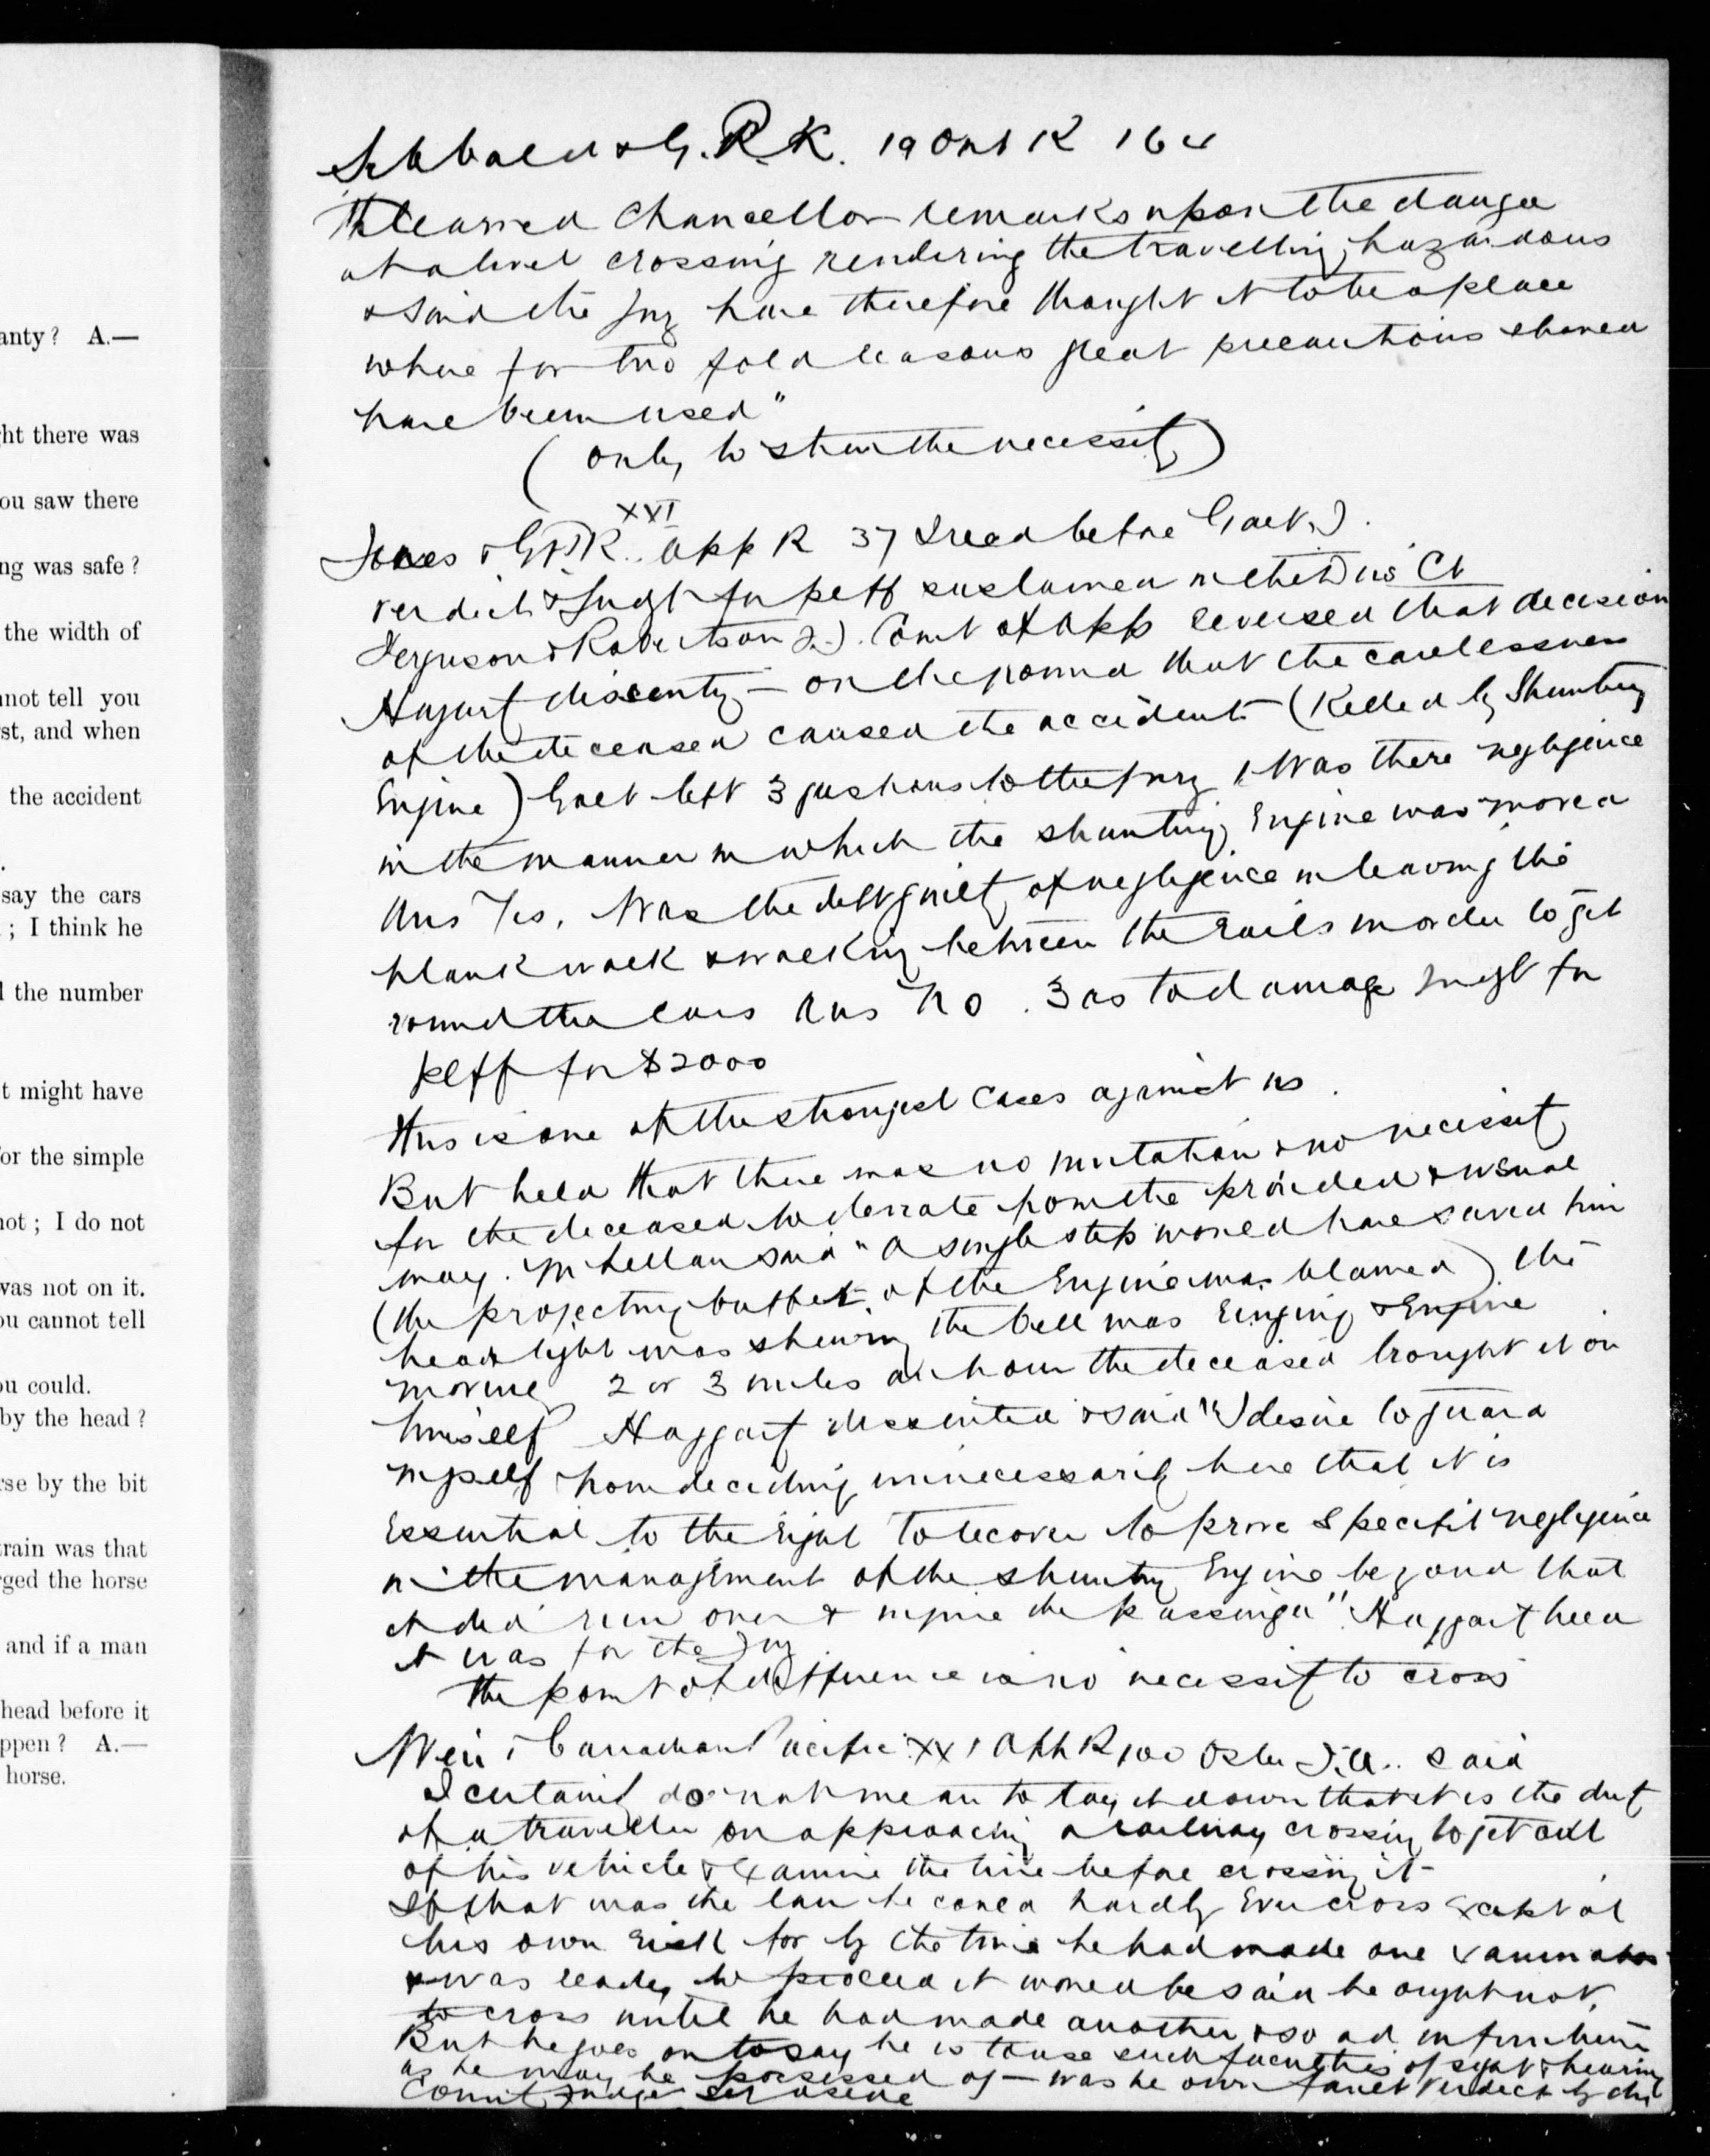 anty? A.—
ght there was
ou saw there
ng was safe?
the width of
nnot tell you
st, and when
the accident
say the cars
; I think he
l the number
t might have
or the simple
not; I do not
was not on it.
ou cannot tell
ou could.
by the head?
rse by the bit
train was that
rged the horse
and if a man
head before it
ppen? A.—
horse.
Sibbald v G.R.R. 19 Ont R 164
The learned Chancellor remarks upon the danger
at a level crossing rendering the travelling hazardous
& said the Jury have therefore thought it to be a place
where for two fold reasons great precautions should
have been used"
(only to shew the necessity)
Jones v G.T.R. XVI App R 37 tried before Galt J.
verdict & Judgt for pltff sustained in the Divis Ct
Ferguson & Robertson JJ. Court of App reversed that decision
Hagarty dissenting — on the ground that the carelessness
of the deceased caused the accident (Killed by Shunting
Engine) Galt left 3 questions to the Jury 1 Was there negligence
in the manner in which the shunting Engine was moved
Ans Yes. Was the guilty of negligence in leaving the
plank walk & walking between the rails in order to get
round the cars Ans No. 3 as to damage Judgt for
pltff for $2000
This is one of the strongest cases against us.
But held that there was no invitation & no necessity
for the deceased to deviate from the provided & usual
way. McLellan said "A single step would have saved him
(the projecting buffer of the Engine was blamed). the
head light was shewing the bell was ringing & Engine
moving 2 or 3 miles an hour the deceased brought it on
himself Haggart dissented & said "I desire to guard
myself from deciding unnecessarily here that it is
Essential to the right to recover to prove specific negligence
in the management of the shunting Engine beyond that
it did run over & injure the passenger" Haggart held
it was for the Jury
The point of difference is no necessity to cross
Weir v Canadian Pacific XVI App R 100 Osler J.A. said
I certainly do not mean to lay it down that it is the duty
of a traveller on approaching a railway crossing to get out
of his vehicle & Examine the line before crossing it
If that was the law he could hardly Ever cross Except at
his own risk for by the time he had made one Examination
& was ready to proceed it would be said he ought not
to cross until he had made another & so ad infinitum
But he goes on to say he is to use such faculties of sight & hearing
as he may be possessed of — was he own fault verdict by the
County Judge set aside